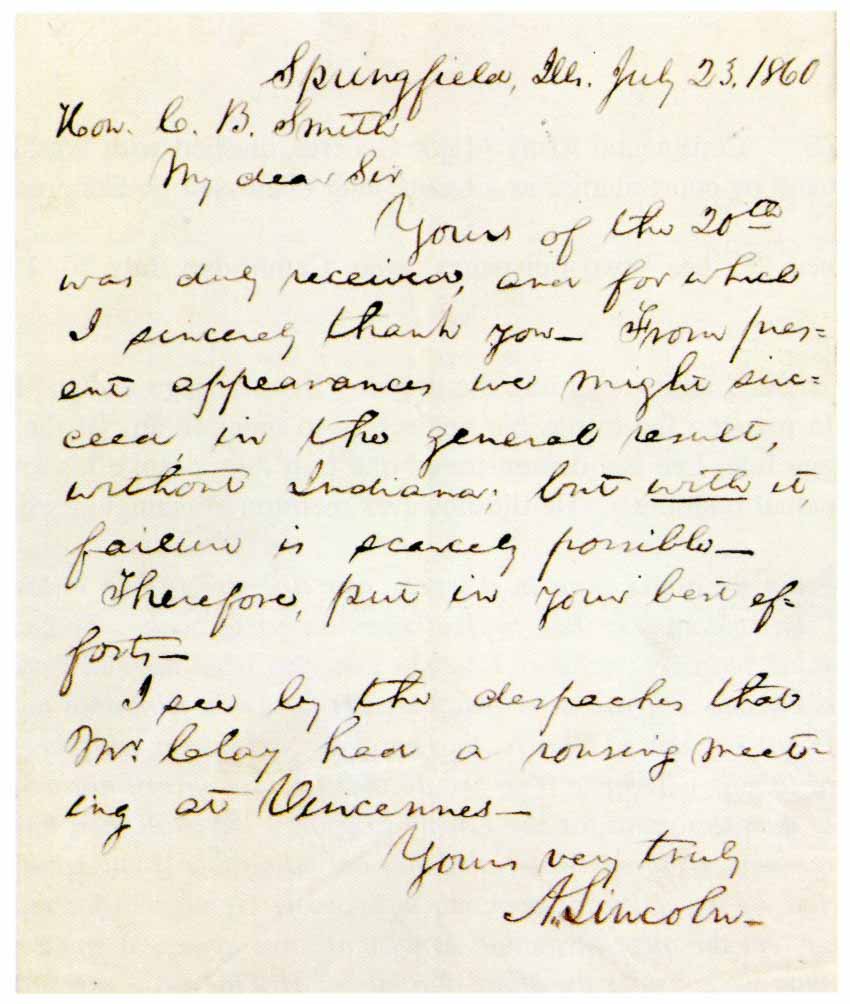 Springfield, Ills. July 23. 1860
Hon. C. B. Smith
My dear Sir
Yours of the 20th
was duly received, and for which
I sincerely thank you— From pres=
ent appearances we might suc=
ceed in the general result,
without Indiana; but with it
failure is scarcely possible—
Therefore, put in your best ef=
forts—
I see by the despaches that
Mr. Clay had a rousing meet-
ing at Vincennes—
Yours very truly
A. Lincoln—